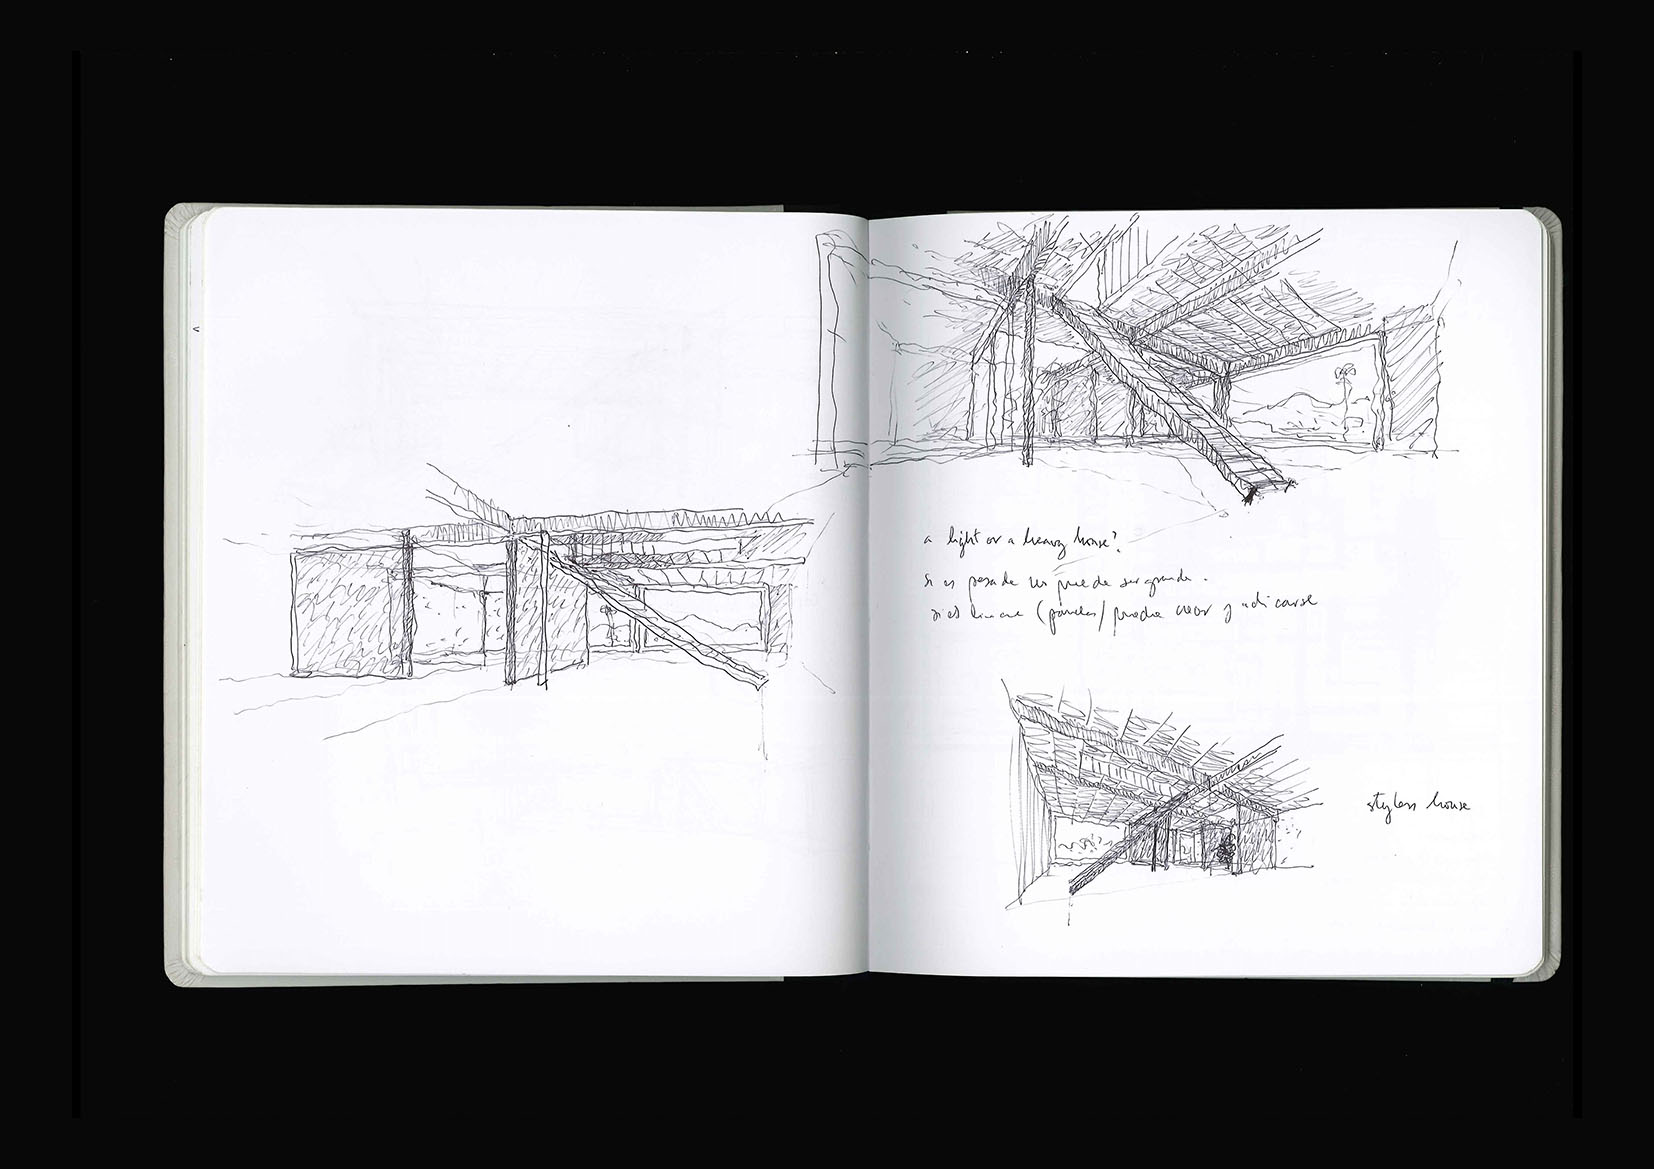 a light or a heavy house?
si es pesada no puede ser grande.
si es liviana (paneles) puede crecer y
styless house